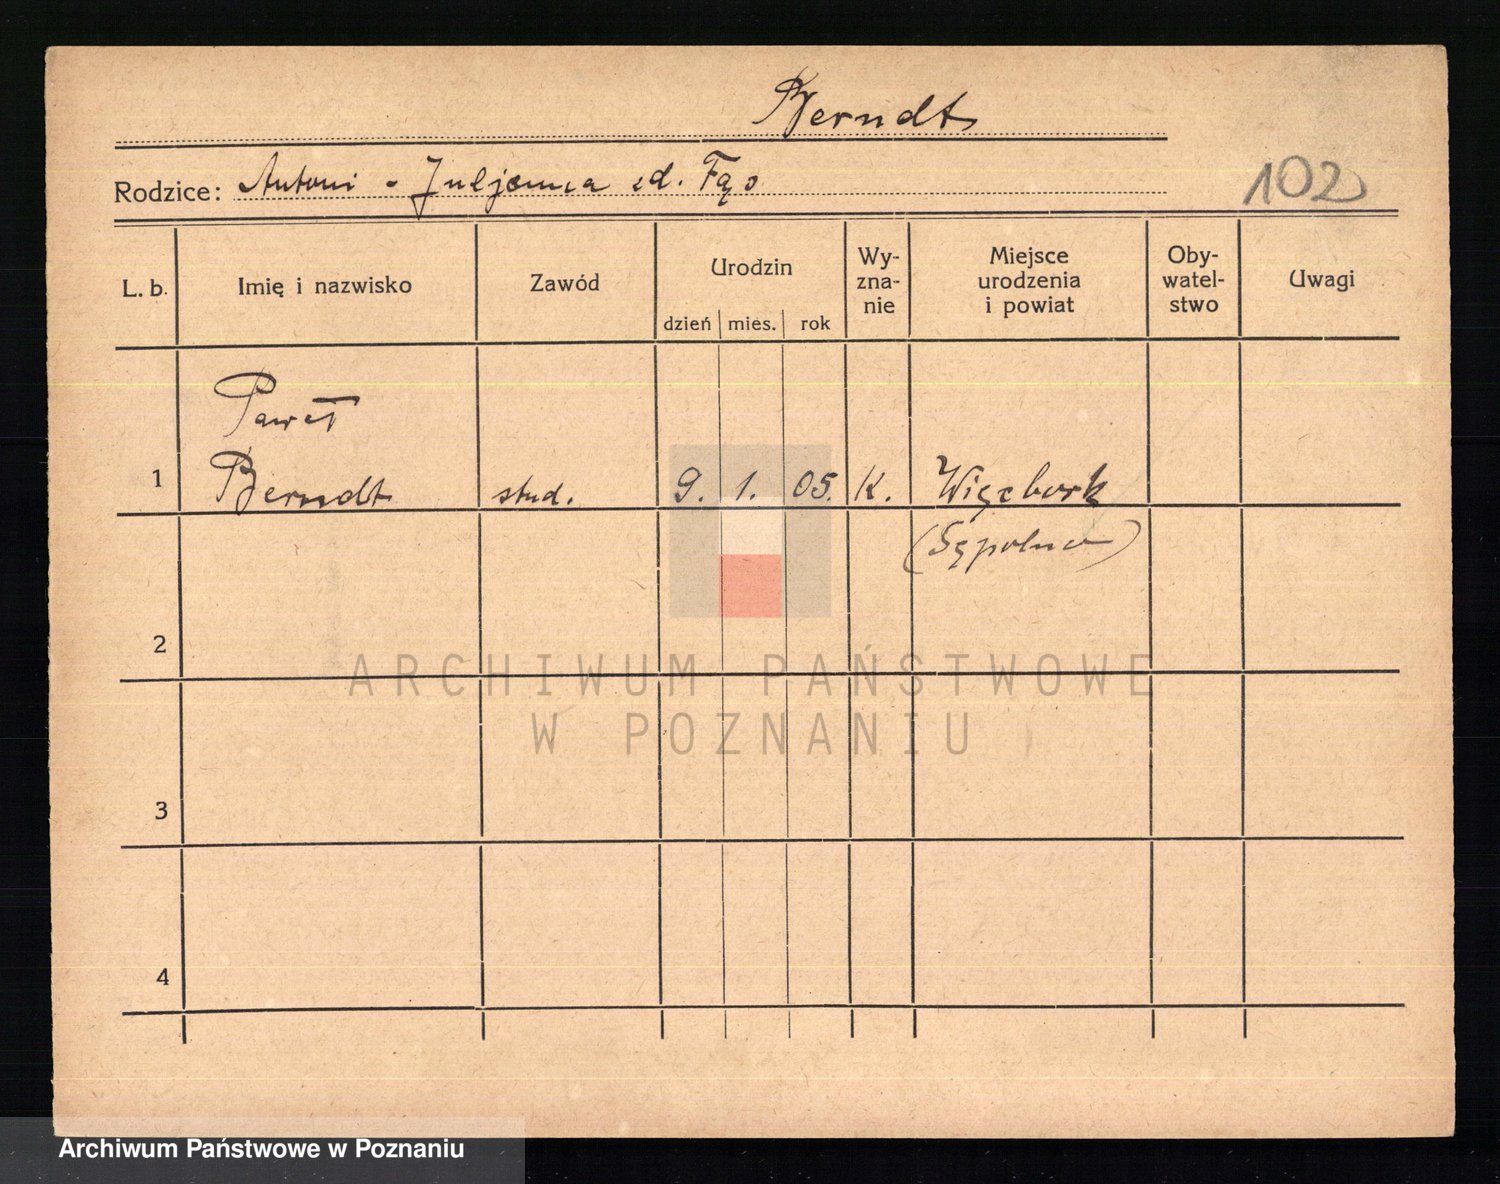 Berndt
102
Rodzice: Antoni - Juljanna zd.
L. b.
Imię i nazwisko
Zawód
Urodzin
dzień mies. rok
Wy-
zna-
nie
Miejsce
urodzenia
i powiat
Oby-
watel-
stwo
Uwagi
Paweł
1 Berndt stud. 9. 1. 05. K. Więcbork
(Sępolno)
2
ARCHIWUM PAŃSTWOWE
W POZNANIU
3
4
Archiwum Państwowe w Poznaniu